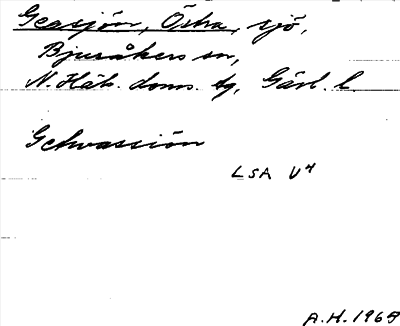 Geasjön, Östra, sjö,
Bjuråkers sn,
N. Häls. doms. tg, Gävl. l.
Gehvassiön
LSA U4
A.H. 1968